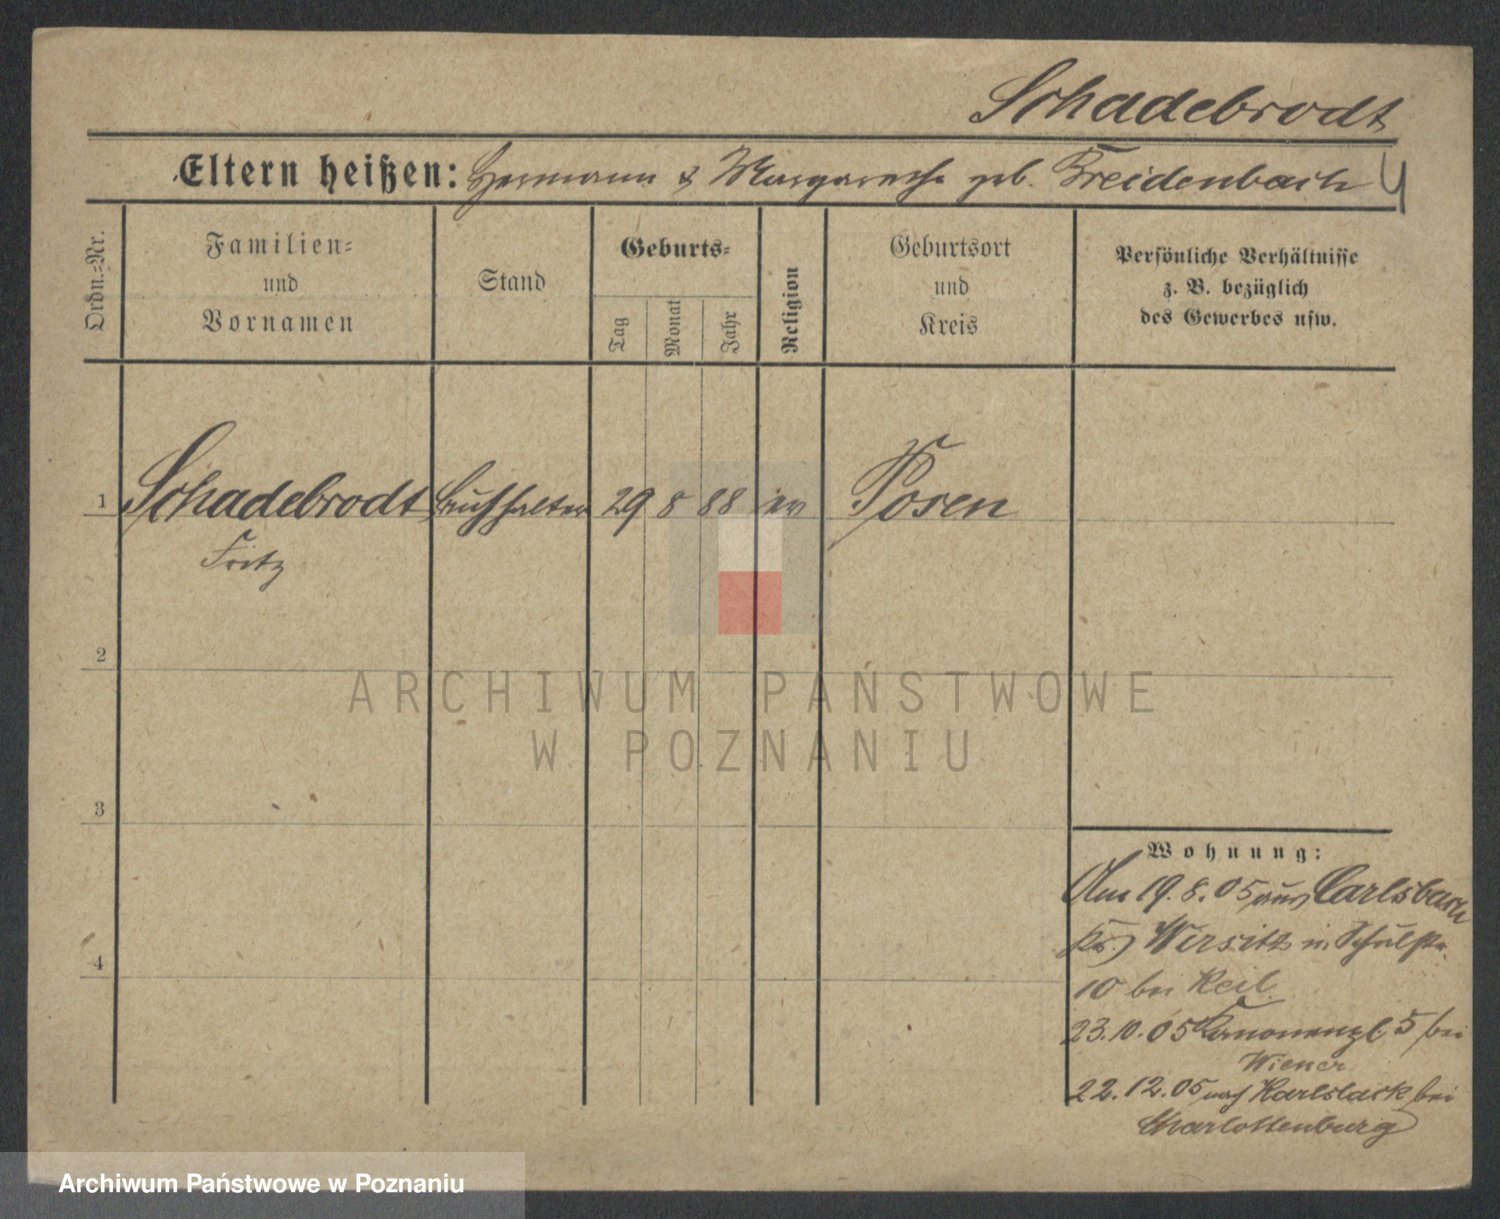 Schadebrodt
Eltern heißen: Hermann & Margarethe geb. Breidenbach
Ordn.=Nr.
Familien=
und
Vornamen
Stand
Geburts=
Tag
Monat
Jahr
Religion
Geburtsort
und
Kreis
Persönliche Verhältnisse
z. B. bezüglich
des Gewerbes usw.
1 Schadebrodt Buchhalter 29 8 88 ev Posen
Fritz
2
ARCHIWUM PAŃSTWOWE
W POZNANIU
3
Wohnung:
Am 19.8.05 aus Carlsbach
Kr. Wirsitz n. Schulstr.
4
10 bei Keil
23.10.05 Kanonenpl 5 bei
Wiener
22.12.05 nach bei
Charlottenburg
Archiwum Państwowe w Poznaniu